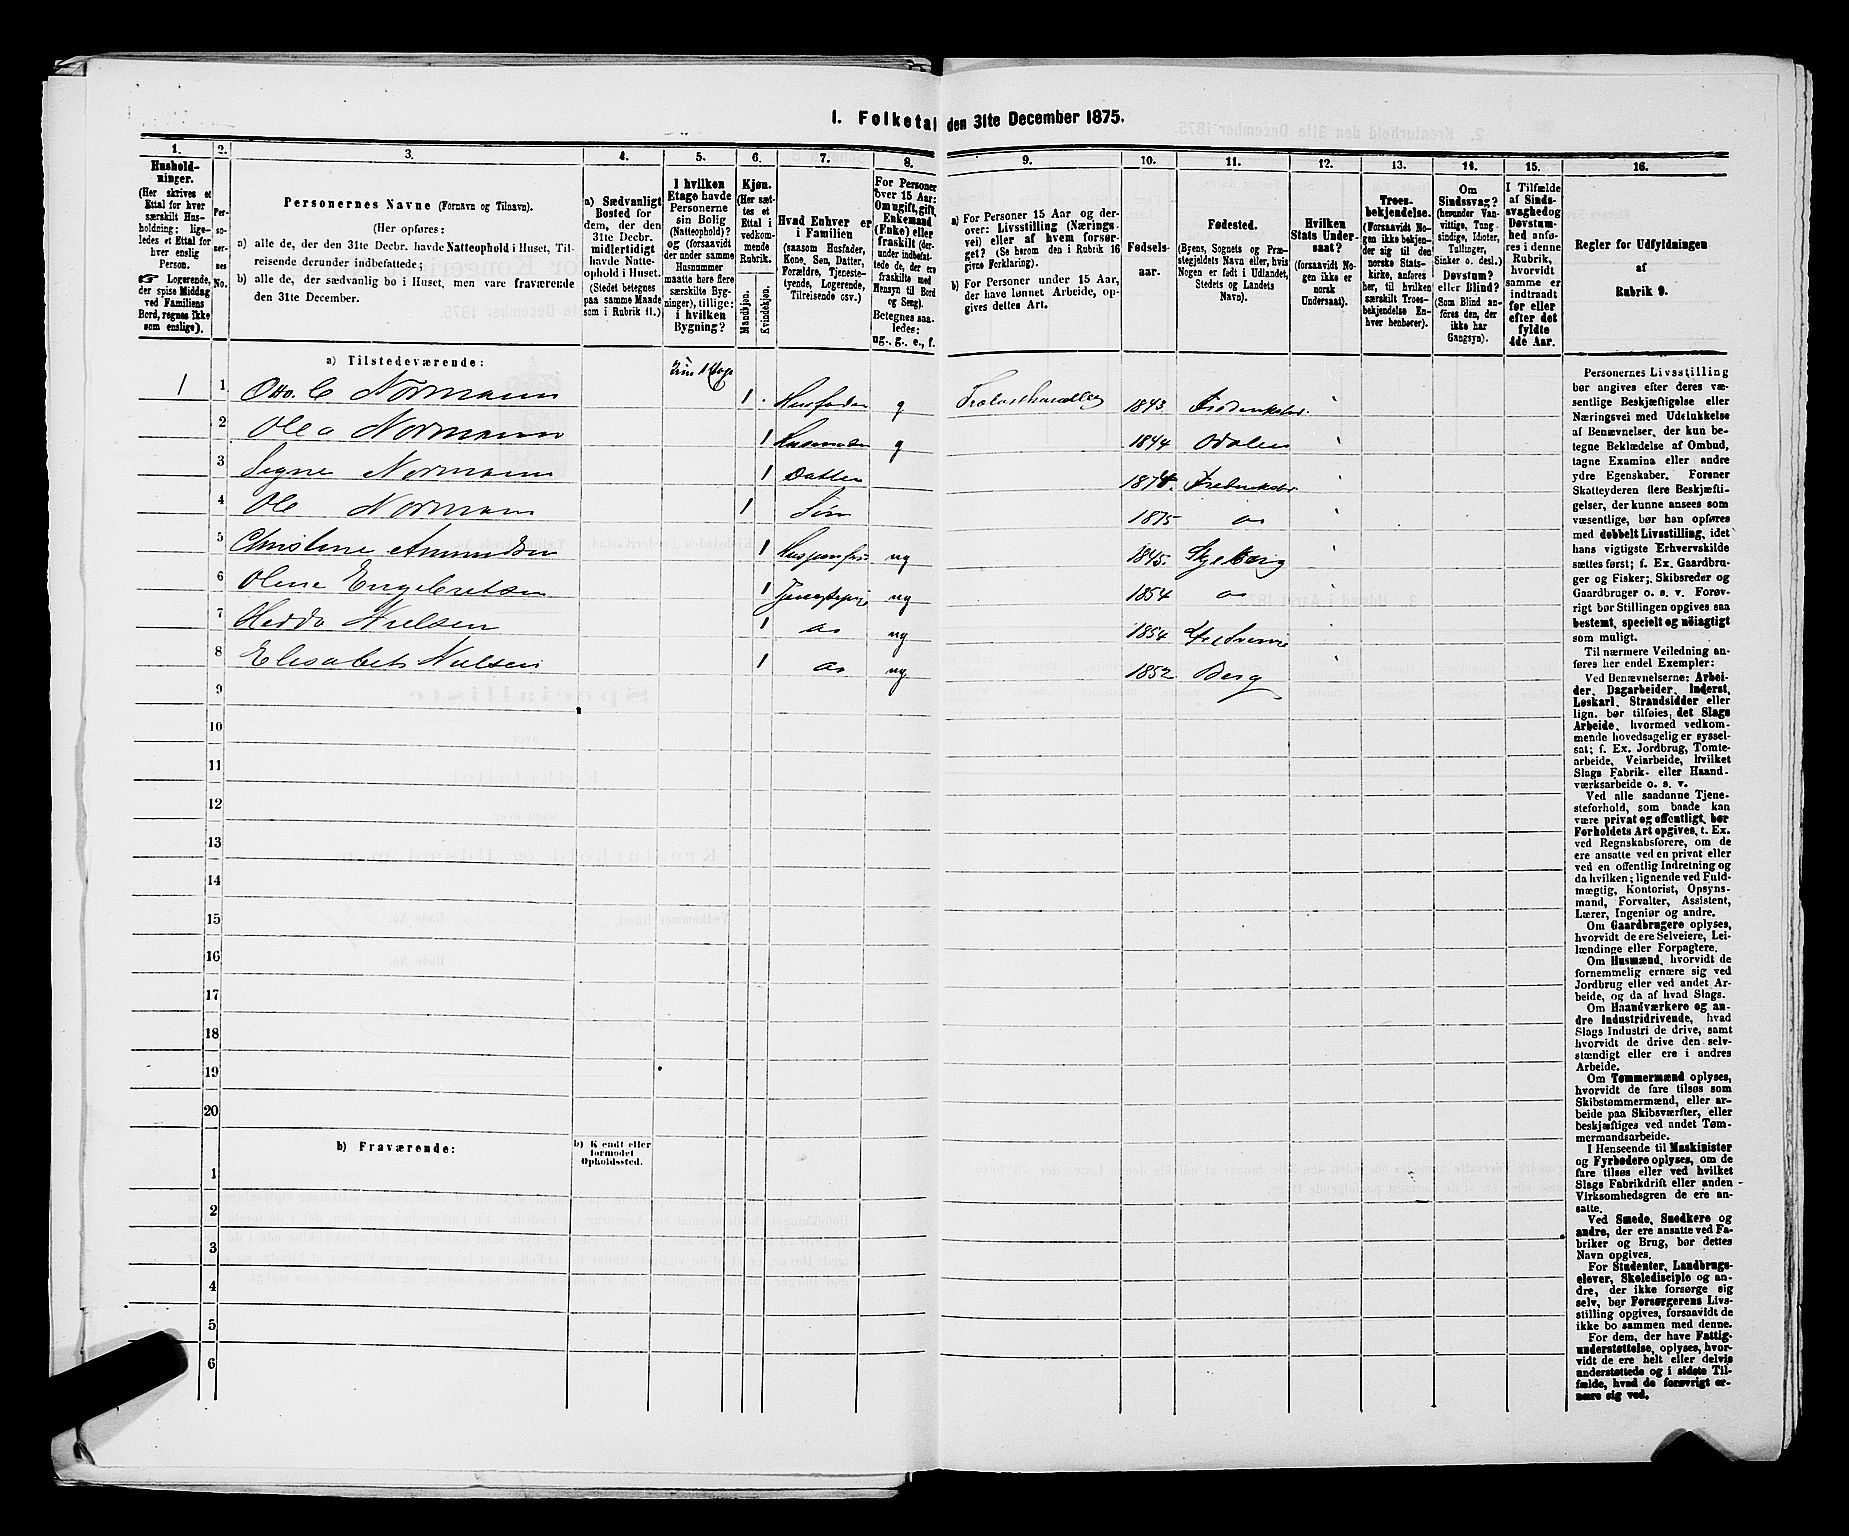 1. Folketal den 31te December 1875.
1.
Hushold-
ninger.
(Her skrives et
Ettal for hver
særskilt Hus-
holdning; lige-
ledes et Ettal for
hver enslig
Person.
Logerende,
der spise Middag
ved Familiens
Bord, regnes ikke
som enslige).
2.
Per-
so-
ner-
nes
No.
3.
Personernes Navne (Fornavn og Tilnavn).
(Her opføres:
a) alle de, der den 31te Decbr. havde Natteophold i Huset, Til-
reisende derunder indbefattede;
b) alle de, der sædvanlig bo i Huset, men vare fraværende
den 31te December.
4.
a) Sædvanligt
Bosted for
dem, der den
31te Decbr.
midlertidigt
havde Natte-
ophold i Huset.
(Stedet betegnes
paa samme Maade
som i Rubrik 11.)
5.
I hvilken
Etage havde
Personerne
sin Bolig
(Natteophold)?
og (forsaavidt
der under samme
Husnummer
maatte høre flere
særskilte Byg-
ninger), tillige:
i hvilken
Bygning?
6.
Kjøn.
(Her sæt-
tes et
Ettal i
vedkom-
mende
Rubrik.
Mandkjøn.
Kvindekjøn.
7.
Hvad Enhver er
i Familien
(saasom Husfader,
Kone, Søn, Datter,
Forældre, Tjeneste-
tyende, Logerende,
Tilreisende osv.)
8.
For Personer
over 15 Aar:
Om ugift, gift,
Enkemand
(Enke) eller
fraskilt (der-
under indbefat-
tede de, der ere
fraskilte med
Hensyn til Bord
og Seng).
Betegnes saa-
ledes:
ug., g., e., f.
9.
a) For Personer 15 Aar og der-
over: Livsstilling (Nærings-
vei) eller af hvem forsør-
get? (Se herom den i Rubrik 16
givne Forklaring).
b) For Personer under 15 Aar,
der have lønnet Arbeide, op-
gives dettes Art.
10.
Fødsels-
aar.
11.
Fødested.
(Byens, Sognets og Præ-
stegjeldets Navn eller, hvis
Nogen er født i Udlandet,
Stedets og Landets
Navn).
12.
Hvilken
Stats Under-
saat?
(forsaavidt No-
gen ikke er
norsk
Undersaat).
13.
Troes-
bekjendelse.
(Forsaavidt No-
gen ikke bekjen-
der sig til den
norske Stats-
kirke, anføres
her, til hvilken
særskilt Troes-
bekjendelse En-
hver henhører).
14.
Om
Sindssvag?
(herunder Van-
vittige, Tung-
sindige, Idioter,
Tullinger,
Sinker o. desl.)
Døvstum?
eller Blind?
(Som Blind an-
føres den, der
ikke har
Gangsyn).
15.
I Tilfælde
af Sinds-
svaghed og
Døvstum-
hed anfø-
res i denne
Rubrik,
hvorvidt
samme er
indtraadt
før eller
efter det
fyldte
4de Aar.
16.
Regler for Udfyldningen
af
Rubrik 9.
a) Tilstedeværende:
1 1 Otto C Normann 1 Husfader g 1843 Frederikstad
2 Olea Normann 1 Husmoder g 1844 Odalen
3 Signe Normann 1 Datter 1874 Frederikstad
4 Ole Normann 1 Søn 1875 do
5 Christine Amundsen 1 ug 1845. Skjeberg
6 Oline Engebretsen 1 Tjenestepige ug 1854 do
7 Hedda Nielsen 1 do ug 1854
8 Elisabeth Nielsen 1 do ug 1852 Berg
9
10
11
12
13
14
15
16
17
18
19
20
b) Fraværende:
b) Kjendt eller
formodet
Opholdssted.
1
2
3
4
5
6
Personernes Livsstilling
bør angives efter deres væ-
sentlige Beskjæftigelse eller
Næringsvei med Udelukkelse
af Benævnelser, der kun be-
tegne Beklædelse af Ombud,
tagne Examina eller andre
ydre Egenskaber. Forener
Skatteyderen flere Beskjæfti-
gelser, der kunne ansees som
væsentlige, bør han opføres
med dobbelt Livsstilling, idet
hans vigtigste Erhvervskilde
sættes først; f. Ex. Gaardbru-
ger og Fisker; Skibsreder og
Gaardbruger o. s. v. Forøv-
rigt bør Stillingen opgives saa
bestemt, specielt og nøiagtigt
som muligt.
Til nærmere Veiledning an-
føres her endel Exempler:
Ved Benævnelserne: Arbei-
der, Dagarbeider, Inderst,
Løskarl, Strandsidder eller
lign. bør tilføies, det Slags
Arbeide, hvormed vedkom-
mende hovedsagelig er syssel-
sat; f. Ex. Jordbrug, Tomte-
arbeide, Veiarbeide, hvilket
Slags Fabrik- eller Haand-
værksarbeide o. s. v.
Ved alle saadanne Tjene-
steforhold, som baade kan
være privat og offentligt, bør
Forholdets Art opgives, t. Ex.
ved Regnskabsførere, om de
ere ansatte ved en privat eller
ved en offentlig Indretning og
da hvilken; lignende ved Fuld-
mægtig, Kontorist, Opsyns-
mand, Forvalter, Assistent,
Lærer, Ingeniør og andre.
Om Gaardbrugere oplyses,
hvorvidt de ere Selveiere, Lei-
lændinge eller Forpagtere.
Om Husmænd, hvorvidt de
fornemmelig ernære sig ved
Jordbrug eller ved andet Ar-
beide, og da af hvad Slags.
Om Haandværkere og an-
dre Industridrivende, hvad
Slags Industri de drive, samt
hvorvidt de drive den selv-
stændigt eller ere i andres
Arbeide.
Om Tømmermænd oplyses,
hvorvidt de fare tilsøs som
Skibstømmermænd, eller ar-
beide paa Skibsværfter, eller
beskjæftiges ved andet Tøm-
mermandsarbeide.
I Henseende til Maskinister
og Fyrbødere oplyses, om de
fare tilsøs eller ved hvilket
Slags Fabrikdrift eller anden
Virksomhedsgren de ere an-
satte.
Ved Smede, Snedkere og
andre, der ere ansatte ved Fa-
briker og Brug, bør dettes
Navn opgives.
For Studenter, Landbrugs-
elever, Skoledisciple og an-
dre, der ikke forsørge sig
selv, bør Forsørgerens Livs-
stilling opgives, forsaavidt de
ikke bo sammen med denne.
For dem, der have Fattig-
understøttelse, oplyses, hvor-
vidt de ere helt eller delvis
understøttede og i sidste Til-
fælde, hvad de forøvrigt er-
nære sig ved.